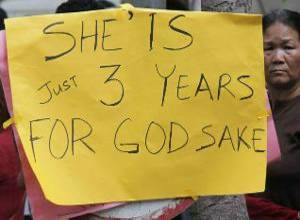 SHE'IS
JUST 3 YEARS
FOR GOD SAKE